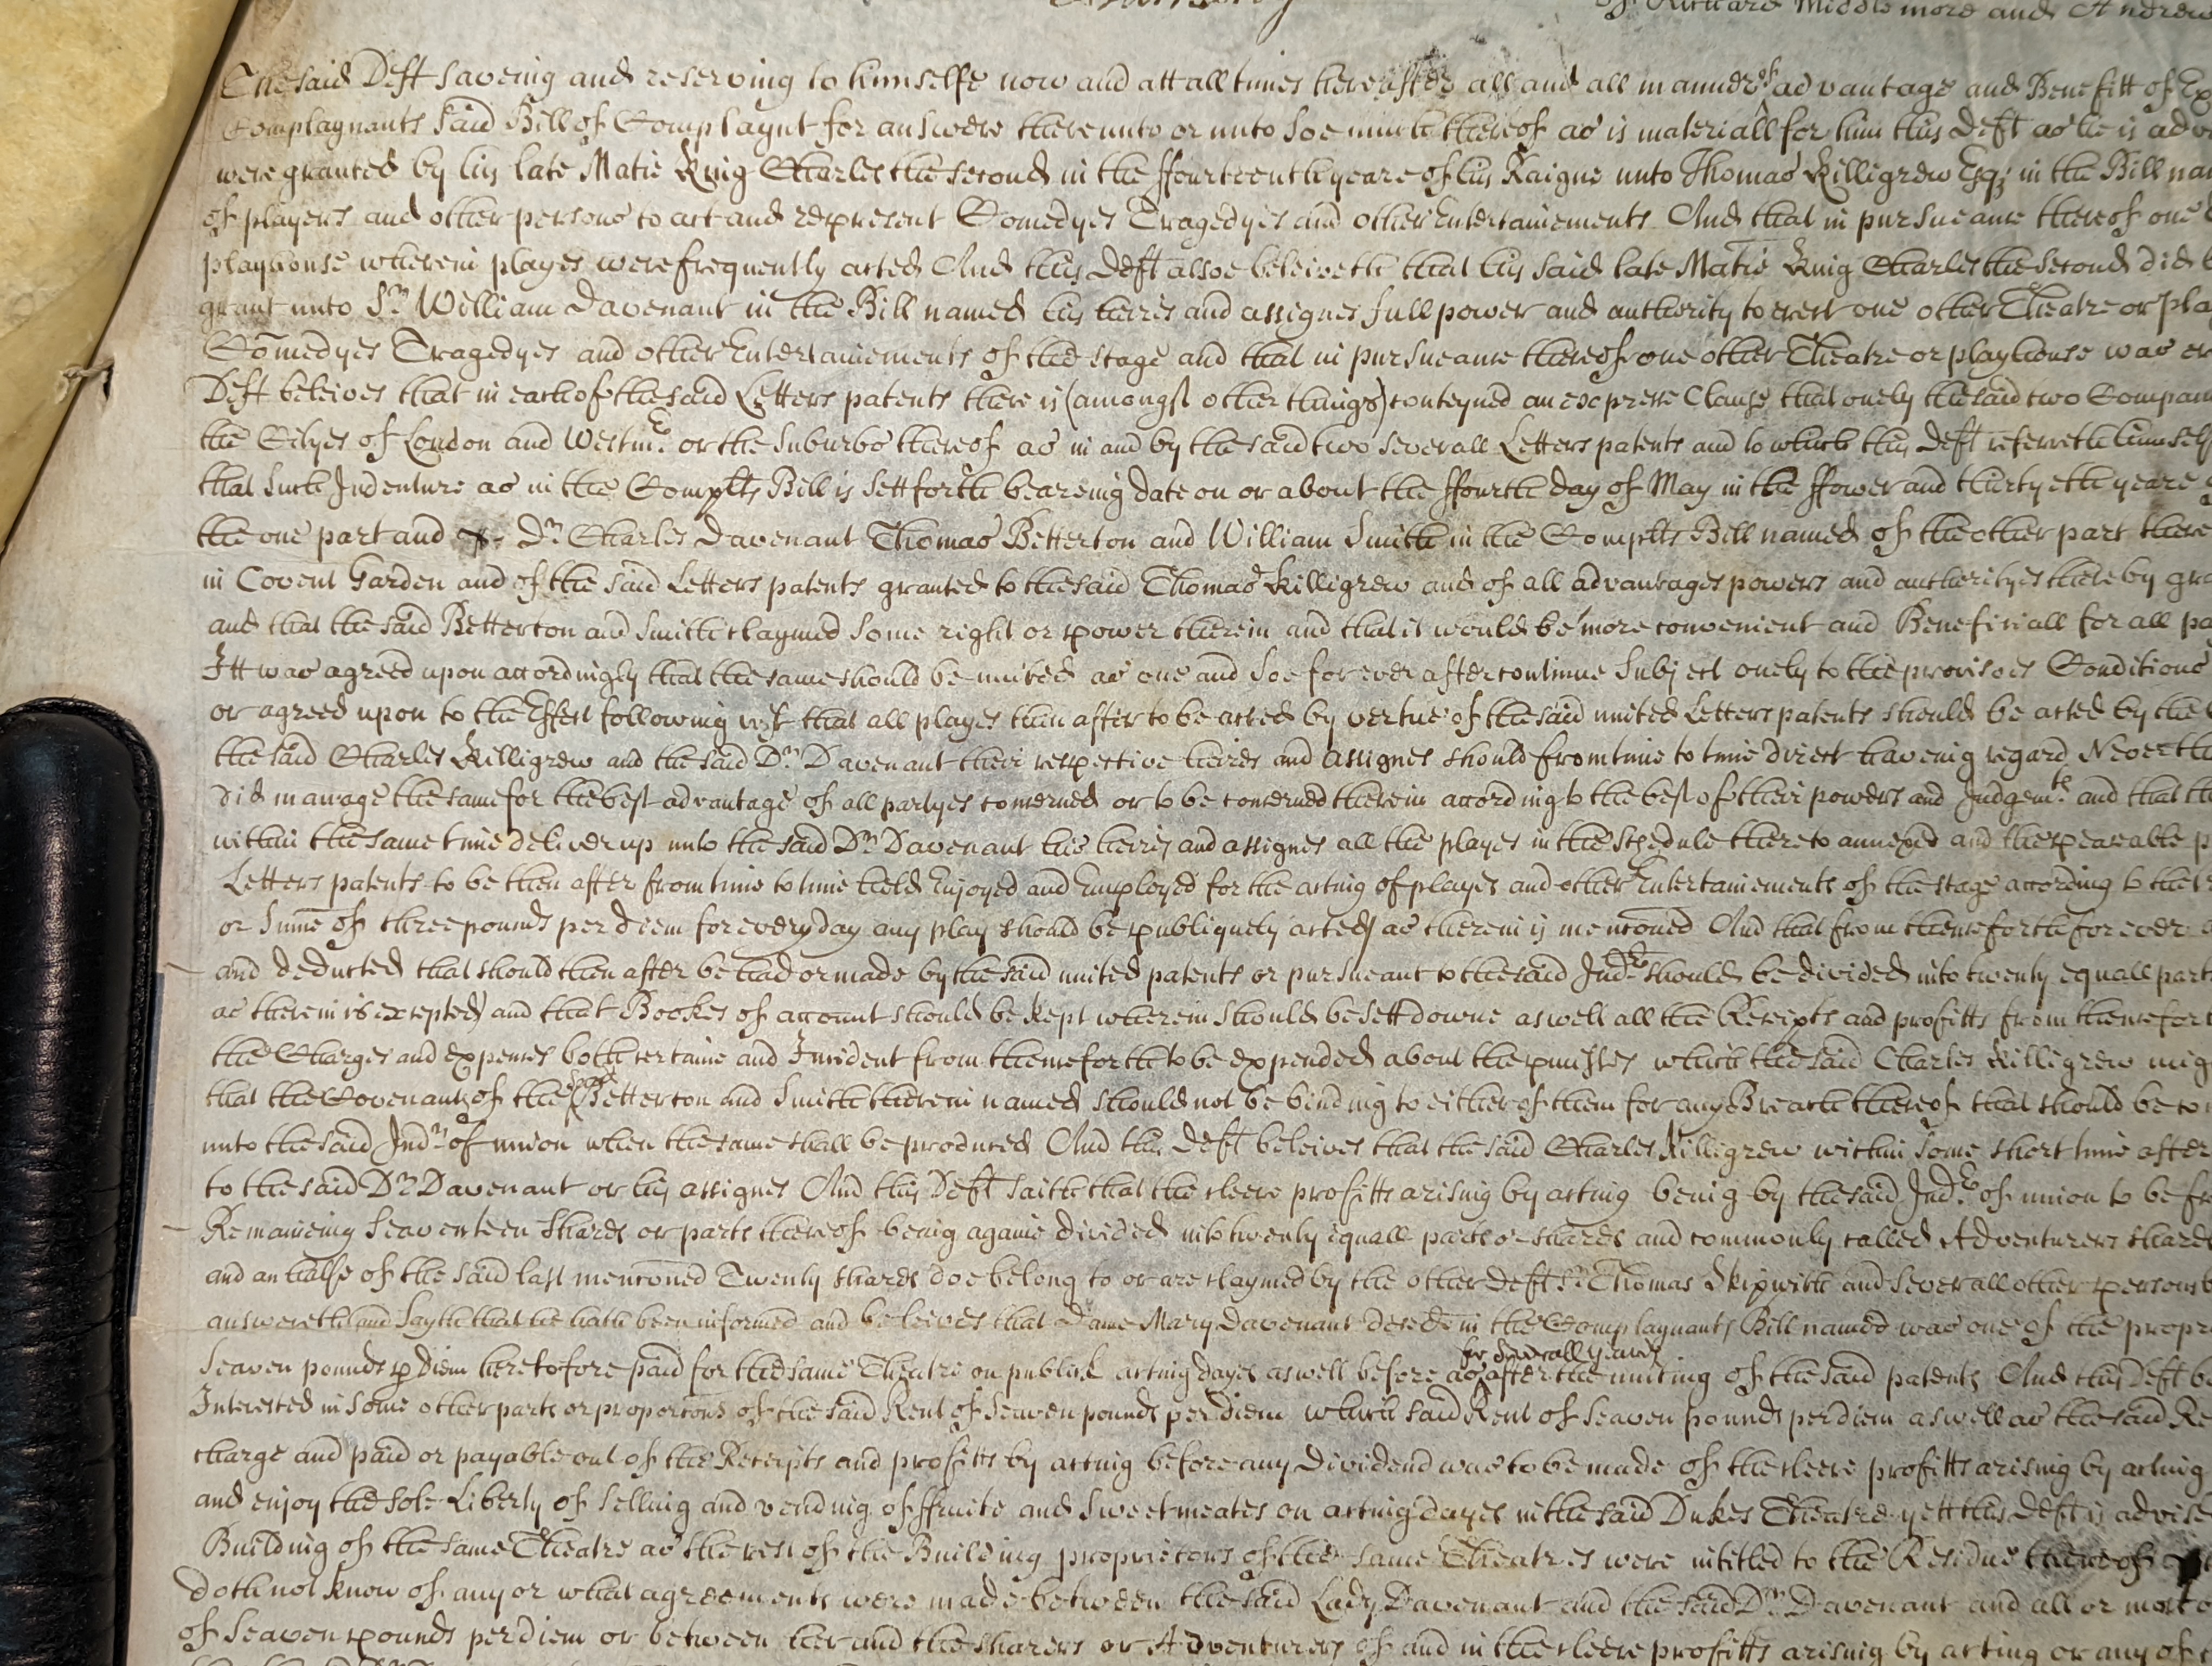 of Richard Middlemore and Andrew
The said Deft saveing and reserving to himselfe now and att all times hereafter all and all manner of advantage and Benefitt of Ex
Complaynants said Bill of Complaynt for answere thereunto or unto soe much thereof as is materiall for him this Deft as he is adv
were granted by his late Matie King Charles the second in the ffourteenth yeare of his Raigne unto Thomas Killigrew Esqr in the Bill nam
of players and other persons to act and represent Comedyes Tragedyes and other Entertainements And that in pursueance thereof one
playhouse wherein playes were frequently acted And this Deft alsoe beleiveth that his said late Matie King Charles the second did
grant unto Sr William Davenant in the Bill named his heires and assignes full power and authority to erect one other Theatre or pla
Comedyes Tragedyes and other Entertainements of the stage and that in pursueance thereof one other Theatre or playhouse was er
Deft beleives that in each of the said Letters patents there is (amongst other things) conteyned an expresse Clause that onely the said two Compan
the Cityes of London and Westmr. or the suburbs thereof as in and by the said two severall Letters patents and to which this Deft referreth himself
that such Indenture as in the Complts Bill is sett forth beareing date on or about the ffourth day of May in the ffower and thirtyeth yeare
the one part and Dr Charles Davenant Thomas Betterton and William Smith in the Complts Bill named of the other part there
in Covent Garden and of the said Letters patents granted to the said Thomas Killigrew and of all advantages powers and authorityes thereby gra
and that the said Betterton and Smith claymed some right or power therein and that it would be more convenient and Beneficiall for all pa
Itt was agreed upon accordingly that the same should be united as one and soe for ever after continue subject onely to the provisoes Conditions
or agreed upon to the Effect following vizt that all playes then after to be acted by vertue of the said united Letters patents should be acted by the
the said Charles Killigrew and the said Dr Davenant their respective heires and assignes should from time to time direct haveing regard Neverthe
did manage the same for the best advantage of all partyes concerned or to be concerned therein according to the best of their powers and Judgemts. and that th
within the same time deliver up unto the said Dr Davenant his heires and assignes all the playes in the Schedule thereto annexed and the peaceable p
Letters patents to be then after from time to time held Enjoyed and Employed for the acting of playes and other Entertainements of the stage according to the
or summe of three pounds per diem for every day any play should be publiquely acted as therein is menconed And that from thenceforth for ever
and deducted that should then after be had or made by the said united patents or pursueant to the said Indre should be divided into twenty equall part
as therein is excepted) and that Bookes of account should be kept wherein should be sett downe as well all the Receipts and profitts from thencefort
the Charges and expences both certaine and Incident from thenceforth to be expended about the premisses which the said Charles Killigrew mig
that the Covenants of the said Betterton and Smith therein named should not be binding to either of them for any Breach thereof that should be co
unto the said Indre of union when the same shall be produced And this Deft beleives that the said Charles Killigrew within some short time after
to the said Dr Davenant or his assignes And this Deft saith that the cleere profitts arising by acting being by the said Indre of union to be fr
Remaineing seaventeen shares or parts thereof being againe divided into twenty equall parts or shares and commonly called Adventurers shares
and an halfe of the said last menconed Twenty shares doe belong to or are claymed by the other Deft Sr Thomas Skipwith and severall other persons
answereth and sayth that he hath been informed and beleives that Dame Mary Davenant deced in the Complaynants Bill named was one of the propr
seaven pounds p diem heretofore paid for the same Theatre on publick acting dayes as well before as for severall yeares after the uniting of the said patents And this Deft be
Interested in some other parts or proportons of the said Rent of seaven pounds per diem which said Rent of seaven pounds per diem as well as the said Re
charge and paid or payable out of the Receipts and profitts by acting before any Dividend was to be made of the cleere profitts arising by acting
and enjoy the sole Liberty of selling and vending of ffruite and sweetmeates on acting dayes in the said Dukes Theatre yett this Deft is advise
Building of the same Theatre as the rest of the Building proprietors of the same Theatres were intitled to the Residue thereof
doth not know of any or what agreements were made between the said Lady Davenant and the said Dr Davenant and all or most
of seaven pounds per diem or between her and the sharers or Adventurers of and in the cleere profitts arising by acting or any of